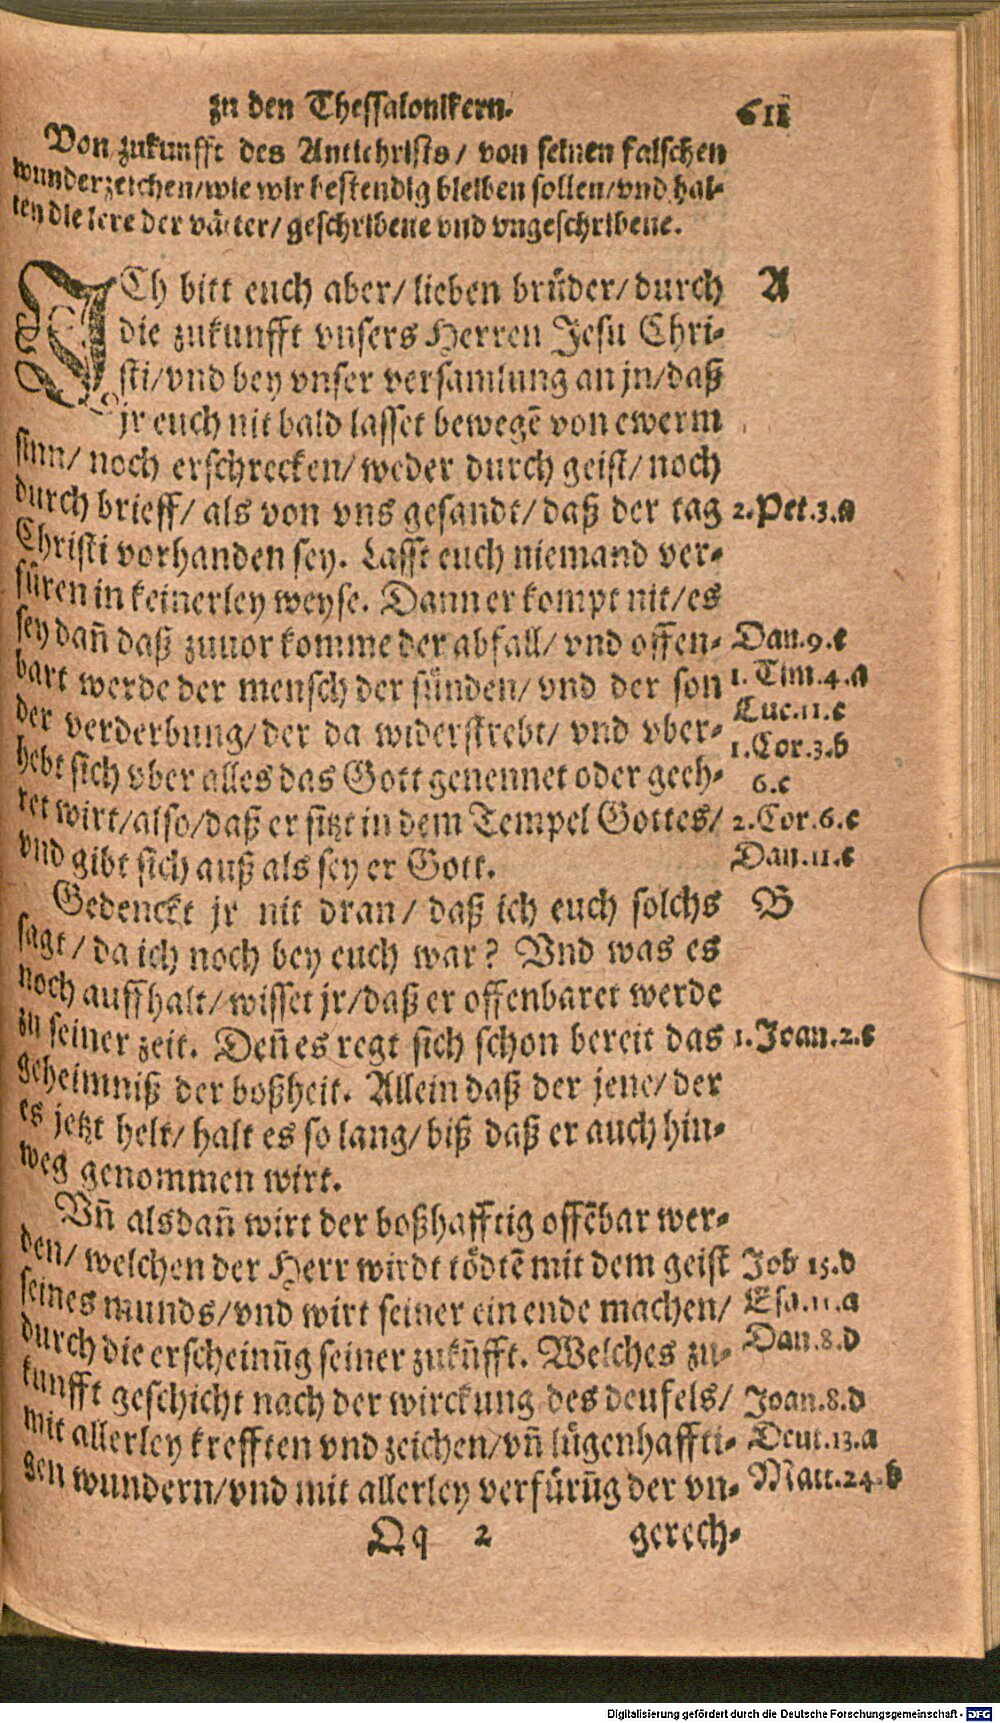 zu den Thessalonikern. 611
Von zukunfft des Antichrists/ von seinen falschen
wunderzeichen/wie wir bestendig bleiben sollen/vnd hal-
ten die lere der vätter/ geschribene vnd vngeschribene.
ICh bitt euch aber/ lieben brüder/ durch A
die zukunfft vnsers Herren Jesu Chri-
sti/vnd bey vnser versamlung an jn/daß
jr euch nit bald lasset bewegē von ewerm
sinn/ noch erschrecken/ weder durch geist/ noch
durch brieff/ als von vns gesandt/ daß der tag 2.Pet.3.a
Christi vorhanden sey. Lasst euch niemand ver-
füren in keinerley weyse. Dann er kompt nit/ es
sey dañ daß zuuor komme der abfall/ vnd offen- Dan.9.e
bart werde der mensch der sünden/ vnd der son 1.Tim.4.a
Luc.11.c
der verderbung/ der da widerstrebt/ vnd vber- 1.Cor.3.b
hebt sich vber alles das Gott genennet oder geeh- 6.c
ret wirt/also/daß er sitzt in dem Tempel Gottes/ 2.Cor.6.c
vnd gibt sich auß als sey er Gott. Dan.11.e
Gedenckt jr nit dran/ daß ich euch solchs B
sagt/ da ich noch bey euch war? Vnd was es
noch auffhalt/ wisset jr/daß er offenbaret werde
zu seiner zeit. Deñ es regt sich schon bereit das 1.Joan.2.c
geheimniß der boßheit. Allein daß der jene/ der
es jetzt helt/ halt es so lang/ biß daß er auch hin-
weg genommen wirt.
Vñ alsdañ wirt der boßhafftig offēbar wer-
den/ welchen der Herr wirdt tödtē mit dem geist Job 15.d
seines munds/vnd wirt seiner ein ende machen/ Esa.11.a
durch die erscheinūg seiner zukūfft. Welches zu- Dan.8.d
kunfft geschicht nach der wirckung des deufels/ Joan.8.d
mit allerley krefften vnd zeichen/vñ lügenhaffti- Deut.13.a
gen wundern/vnd mit allerley verfürūg der vn- Matt.24.b
Qq 2 gerech-
Digitalisierung gefördert durch die Deutsche Forschungsgemeinschaft - DFG